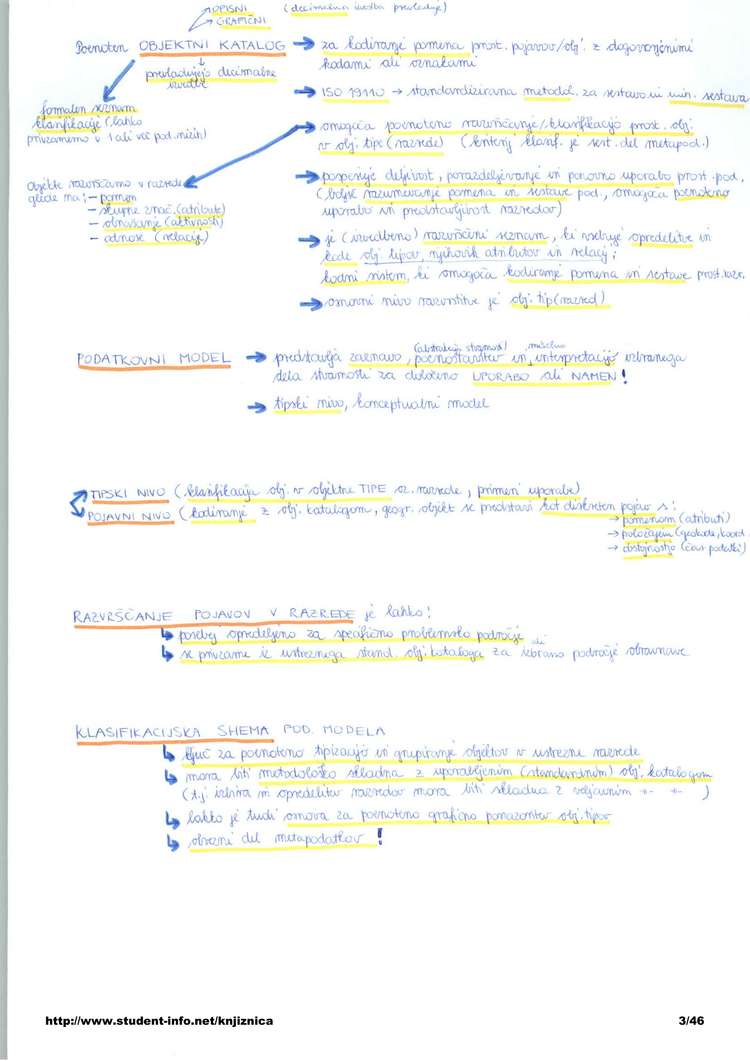 OPISNI (decimalna izvedba prevladuje)
GRAFIČNI
Poenoten OBJEKTNI KATALOG → za kodiranje pomena prost. pojavov/obj. z dogovorjenimi
kodami ali oznakami
prevladujejo decimalne
izvedbe
→ ISO 19110 → standardizirana metodol. za sestavo in min. sestava
formalen seznam
klasifikacije (lahko
privzamemo v 1 ali več pod. nizih)
→ omogoča poenoteno razvrščanje/klasifikacijo prost. obj.
v obj. tipe (razrede) (kriterij klasif. je sest. del metapod.)
Objekte razvrščamo v razrede
glede na: - pomen
- skupne znač. (atribute)
- obnašanje (aktivnosti)
- odnose (relacije)
→ pospešuje deljivost, porazdeljevanje in ponovno uporabo prost. pod.
(boljše razumevanje pomena in sestave pod., omogoča poenoteno
uporabo in predstavljivost razredov)
→ je (izvedbeno) razvrščeni seznam, ki vsebuje opredelitve in
kode obj. tipov, njihovih atributov in relacij;
kodni sistem, ki omogoča kodiranje pomena in sestave prost. razr.
→ osnovni nivo razvrstitve je obj. tip (razred)
PODATKOVNI MODEL → predstavlja zaznavo, poenostavitev in interpretacijo izbranega
(abstrakcija stvarnosti) miselno
dela stvarnosti za določeno UPORABO ali NAMEN!
→ tipski nivo, konceptualni model
TIPSKI NIVO (klasifikacija obj. v objektne TIPE oz. razrede, primeri uporabe)
POJAVNI NIVO (kodiranje z obj. katalogom, geogr. objekt se predstavi kot diskreten pojav s:
→ pomenom (atributi)
→ položajem (geokode, koord.
→ obstojnostjo (čas. podatki)
RAZVRŠČANJE POJAVOV V RAZREDE je lahko:
↳ posebej opredeljeno za specifično problemsko področje ali
↳ se privzame iz ustreznega stand. obj. kataloga za izbrano področje obravnave
KLASIFIKACIJSKA SHEMA POD. MODELA
↳ ključ za poenoteno tipizacijo in grupiranje objektov v ustrezne razrede
↳ mora biti metodološko skladna z uporabljenim (standardnim) obj. katalogom
(t.j. izbira in opredelitev razredov mora biti skladna z veljavnim -"- -"- )
↳ lahko je tudi osnova za poenoteno grafično ponazoritev obj. tipov
↳ obvezni del metapodatkov!
http://www.student-info.net/knjiznica 3/46